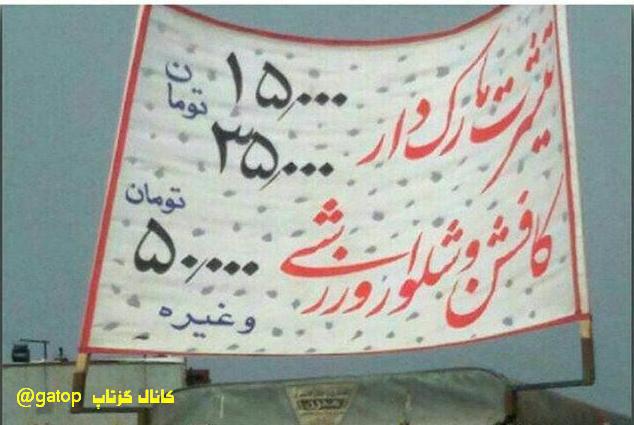 تیشرت مارک دار
۱۵/۰۰۰ تومان
۳۵/۰۰۰
کافشن وشلوار ورزشی
تومان
۵۰/۰۰۰
وغیره
کانال گزتاپ @gatop